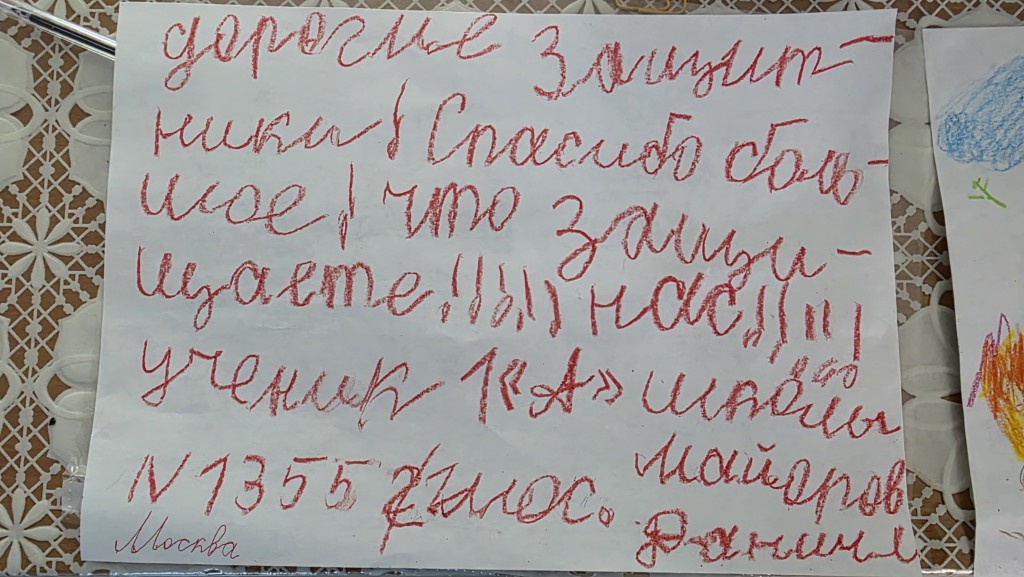 дорогие защит-
ники! Спасибо боль-
шое! что защи-
щаете!!!!!! нас!!!!!!
ученик 1«А» школы
N 1355 г. Мос. Майоров
Москва Даниил